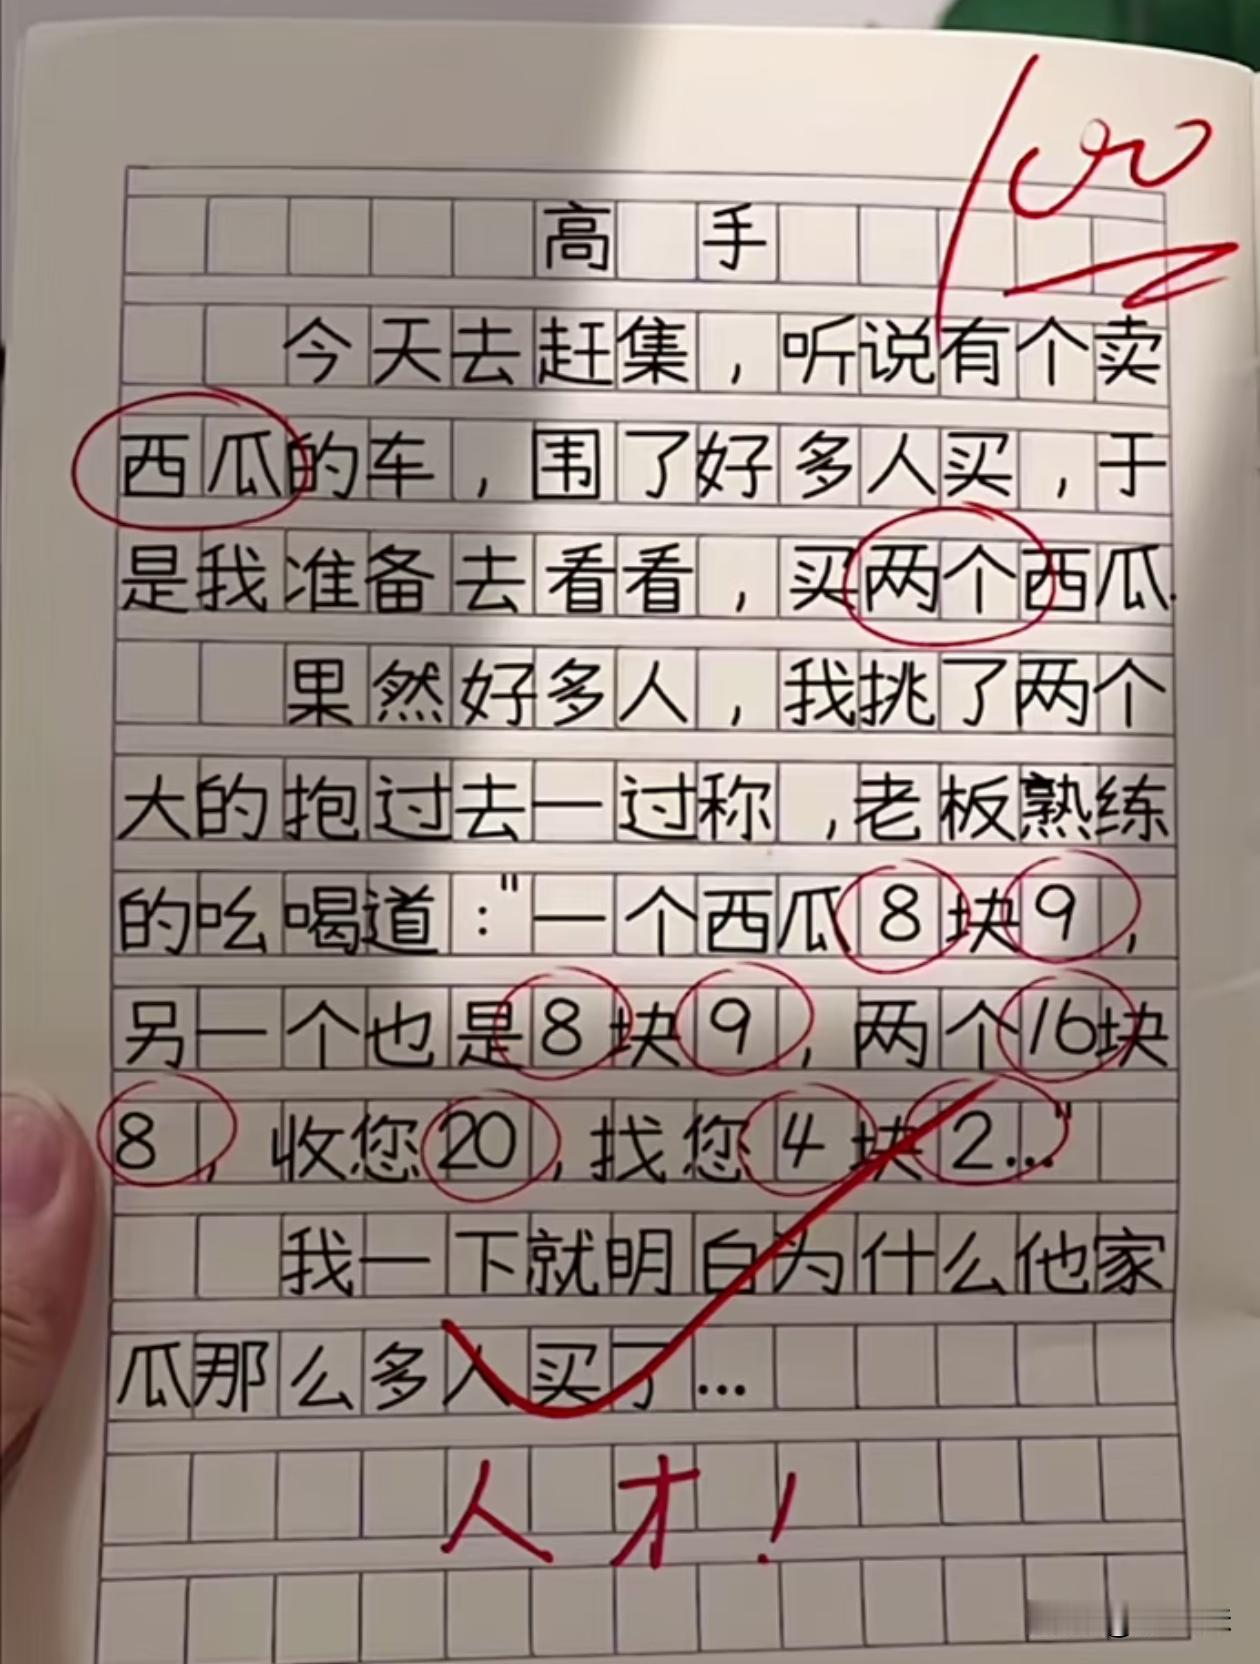 100
高 手
今天去赶集，听说有个卖
西瓜的车，围了好多人买，于
是我准备去看看，买两个西瓜.
果然好多人，我挑了两个
大的抱过去一过称，老板熟练
的吆喝道："一个西瓜8块9，
另一个也是8块9，两个16块
8，收您20，找您4块2..."
我一下就明白为什么他家
瓜那么多人买了...
人才！